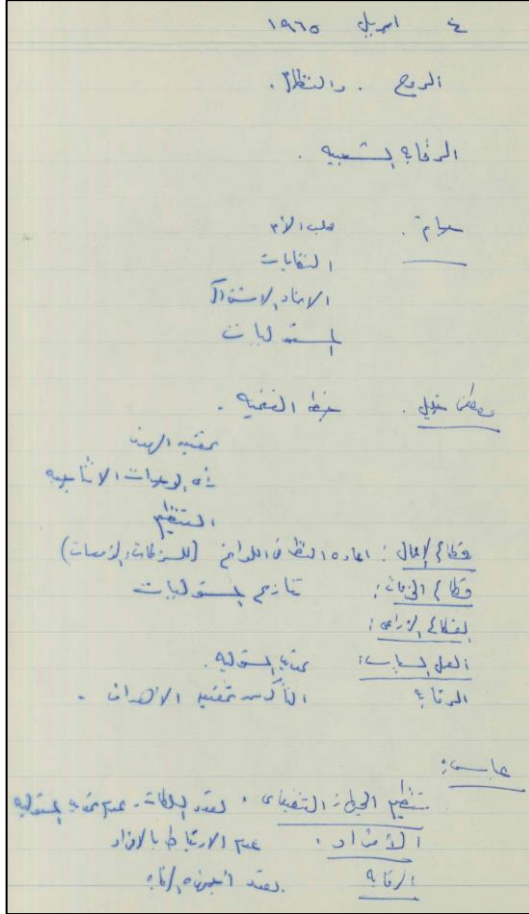 ٤ ابريل ١٩٦٥
الروح . والنظام .
الرقابة الشعبيه .
مجلس الأمه
النقابات
الاتحاد الاشتراكى
المسئوليات
مصطفى خليل .
بتحقيق الهدف
الوحدات الانتاجيه
التنظيم
قطاع الأعمال : اعاده النظر فى اللوائح (للشركات والمؤسسات)
قطاع الخدمات : تنازع المسئوليات
القطاع الزراعى :
العمل السياسى : المسئوليه .
الرقابة التأكد من تحقيق الاهداف .
عباس :
تنظيم العمل : التنفيذى . تعدد السلطات . عدم تحديد المسئوليه
الأفراد . عدم الارتباط بالافراد
الرقابة تعدد اجهزه الرقابه